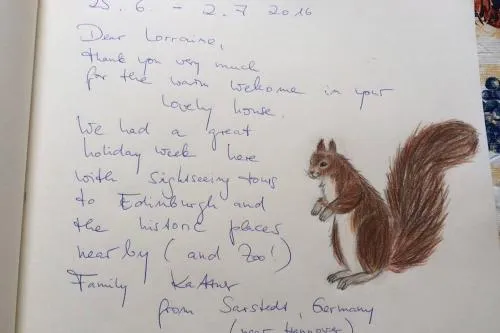 25.6. - 2.7 2016
Dear Lorraine,
thank you very much
for the warm welcome in your
lovely house.
We had a great
holiday week here
with sightseeing tours
to Edinburgh and
the historic places
nearby (and Zoo!)
Family
from Sarstedt, Germany
(near Hannover)